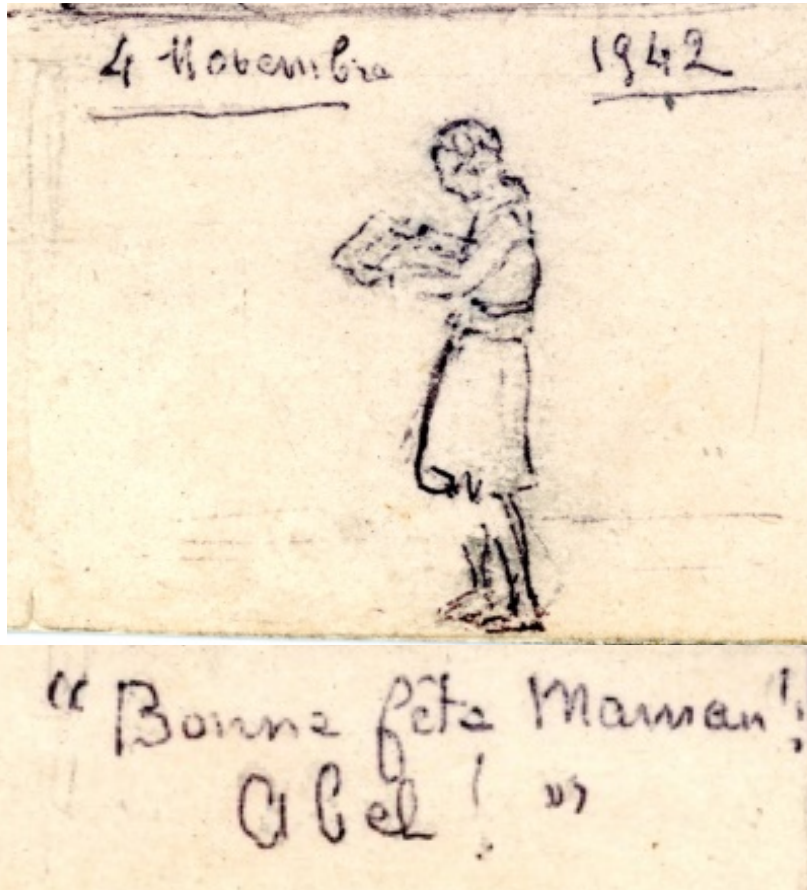 4 Novembre 1942
“ Bonne fête Maman !
Abel ! ”